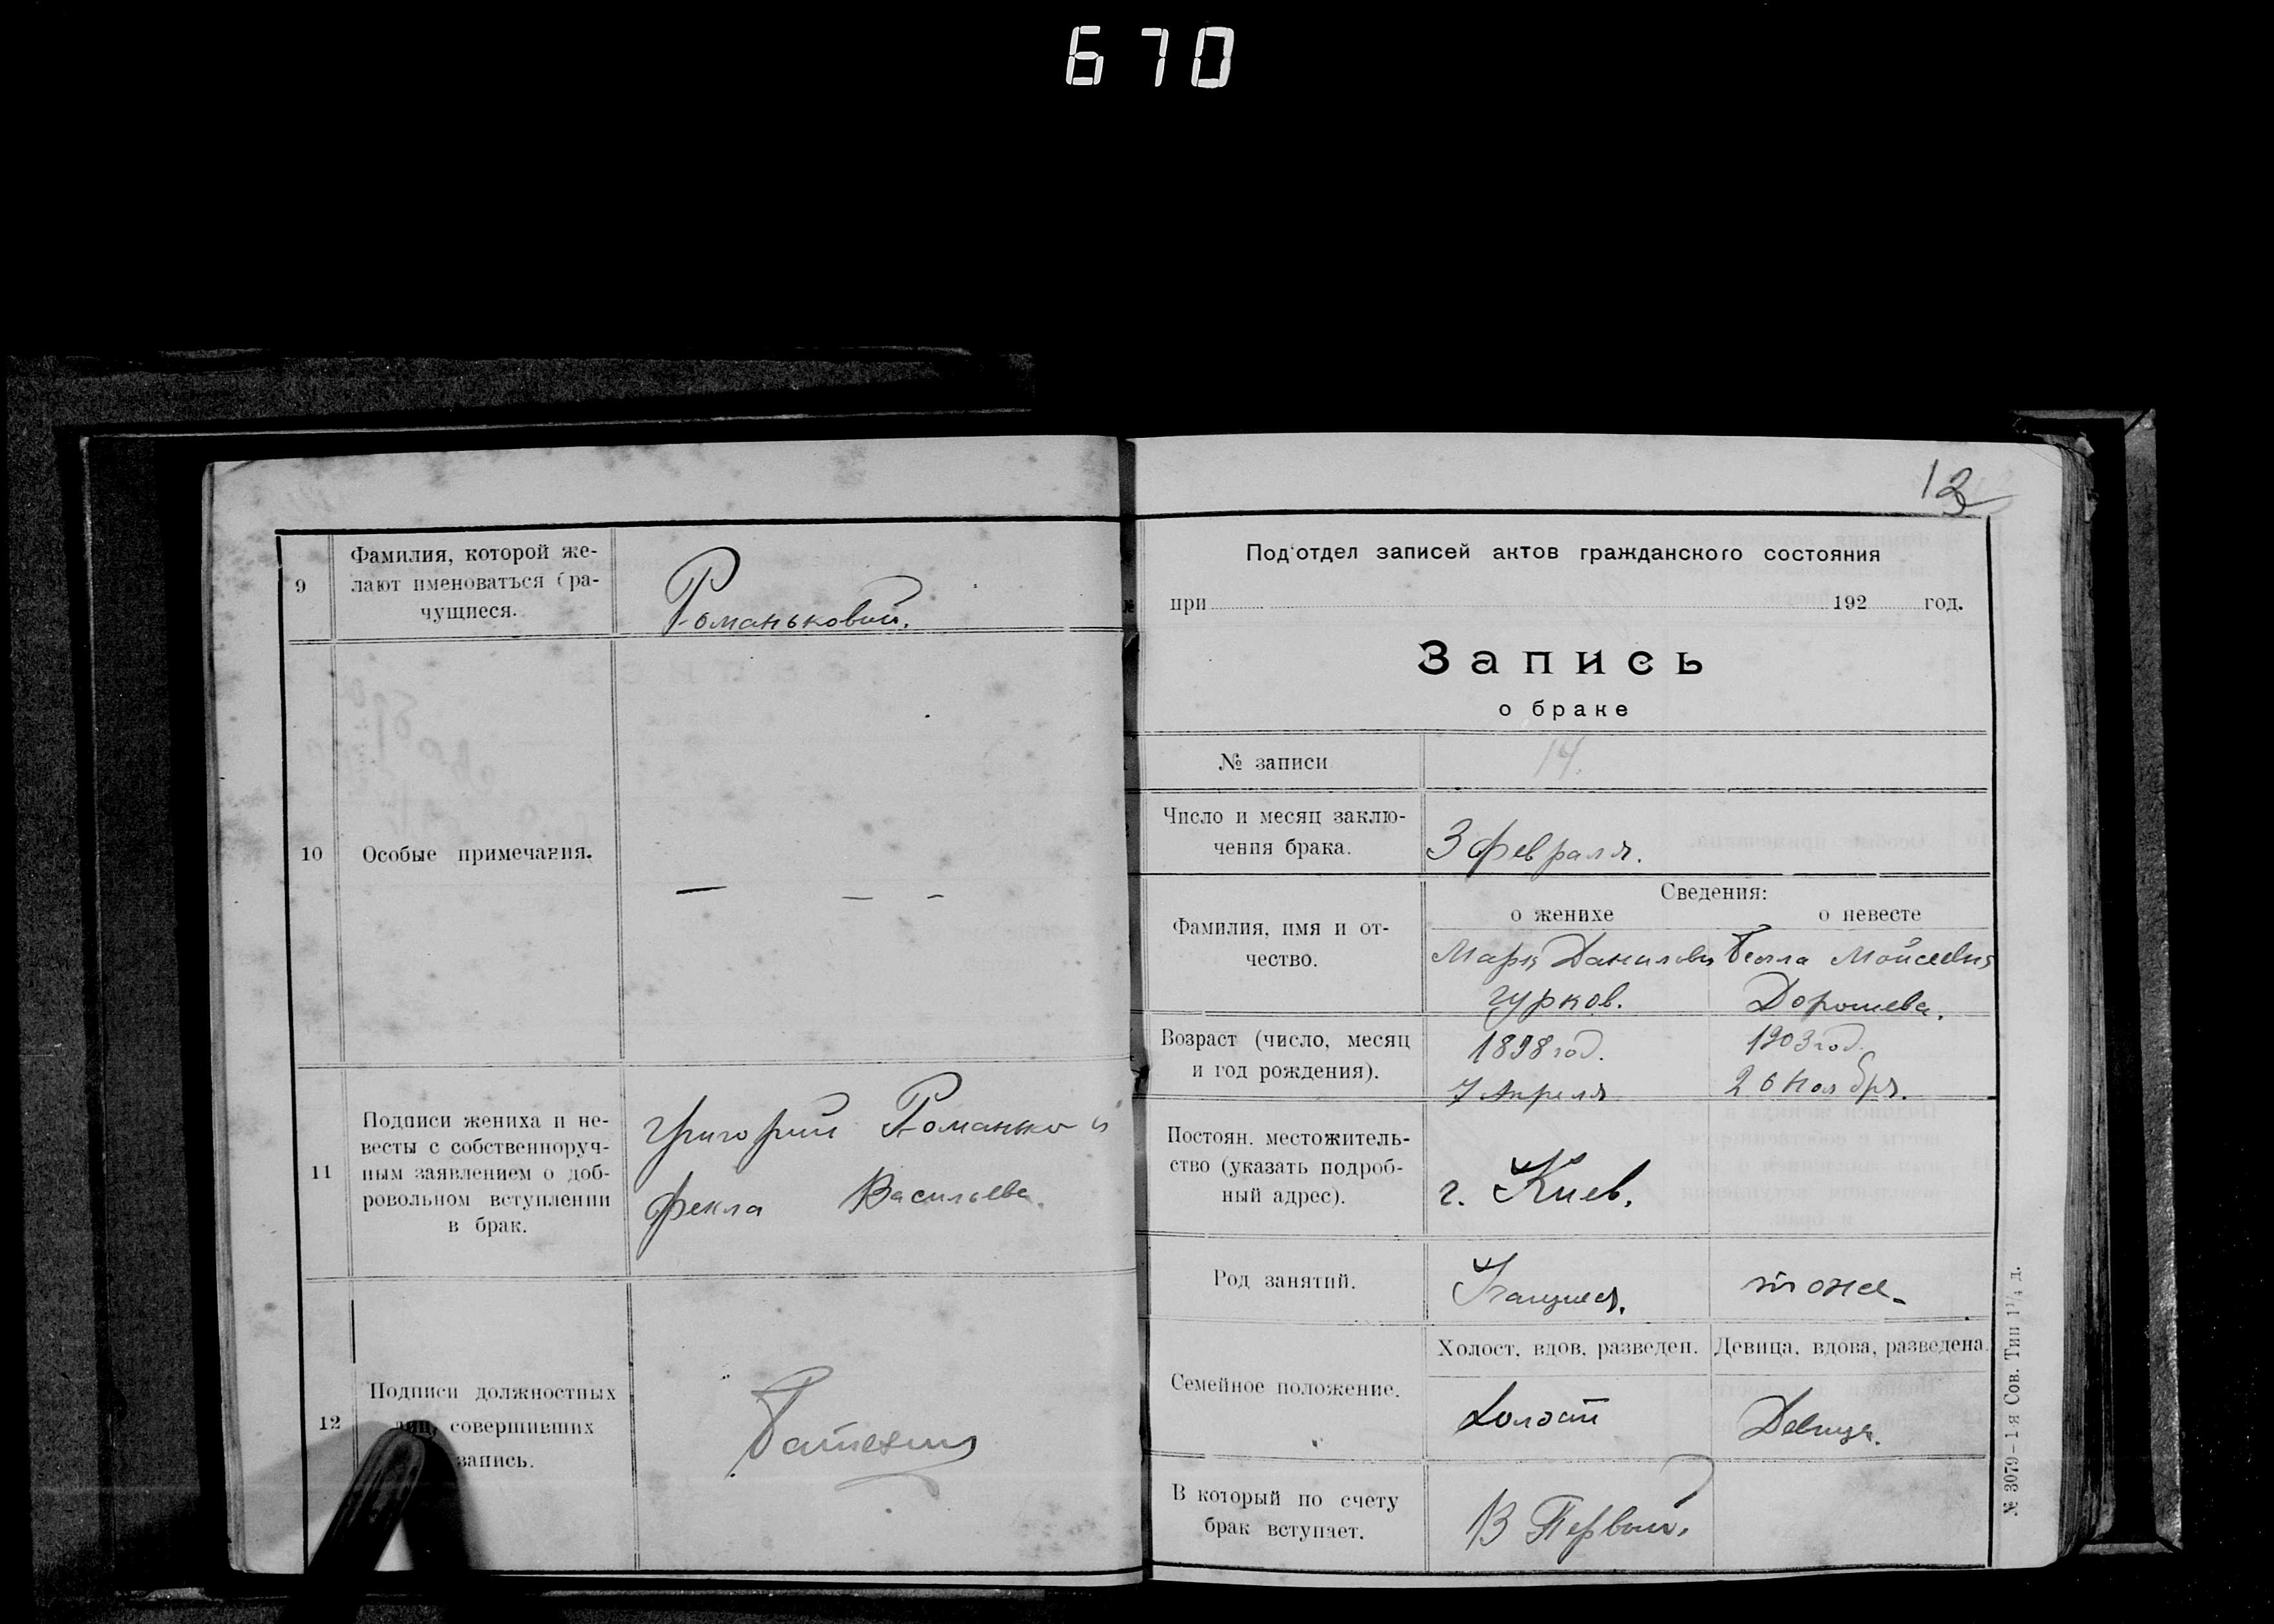 670
9
Фамилия, которой же-
лают именоваться бра-
чущиеся.
Романьковой.
10
Особые примечания.
— — -
11
Подписи жениха и не-
весты с собственноруч-
ным заявлением о доб-
ровольном вступлении
в брак.
Григорий Романьков
Фекла Васильева.
12
Подписи должностных
лиц, совершивших
запись.
13
Под'отдел записей актов гражданского состояния
при 192 год.
Запись
о браке
№ записи
14.
Число и месяц заклю-
чения брака.
3 февраля.
Сведения:
о женихе о невесте
Фамилия, имя и от-
чество.
Марк Данилович
Гурков.
Мойсеевна
Дорошева.
Возраст (число, месяц
и год рождения).
1898 год.
7 Апреля
1903 год.
26 Ноября.
Постоян. местожитель-
ство (указать подроб-
ный адрес).
г. Киев.
Род занятий.
Учащиеся.
тоже
Семейное положение.
Холост, вдов, разведен. Девица, вдова, разведена.
Холост
Девица.
В который по счету
брак вступает.
В Первый.
№ 3079—1-я Сов. Тип 1¼ д.